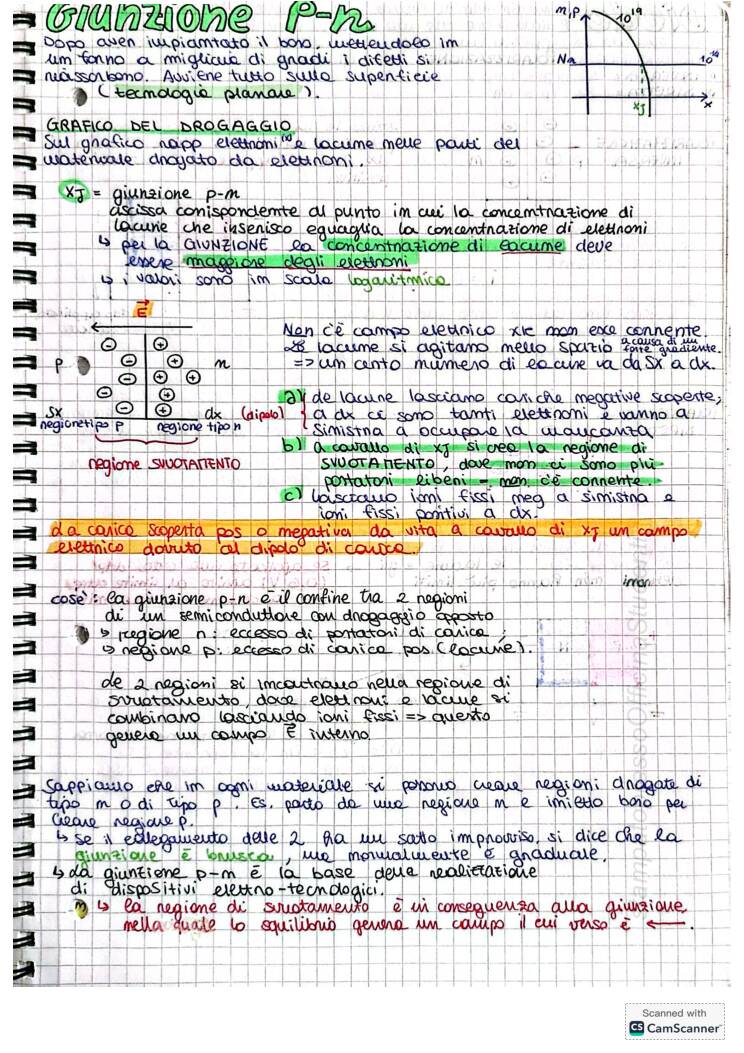 Giunzione p-n
Dopo aver impiantato il boro, mettendolo in
un forno a migliaia di gradi i difetti si
riassorbono. Avviene tutto sulla superficie
(tecnologia planare).
n,p
10¹⁹
Na
10¹⁴
xJ
x
GRAFICO DEL DROGAGGIO
Sul grafico rapp elettroni e lacune nelle parti del
materiale drogato da elettroni.
xJ = giunzione p-n
ascissa corrispondente al punto in cui la concentrazione di
lacune che inserisco eguaglia la concentrazione di elettroni
↳ per la GIUNZIONE la concentrazione di lacune deve
essere maggiore degli elettroni
↳ i valori sono in scala logaritmica
E
p
n
sx
dx (dipolo)
regione tipo p
regione tipo n
regione SVUOTAMENTO
Non c'è campo elettrico xké non c'è corrente.
Le lacune si agitano nello spazio a causa di un forte gradiente.
=> un certo numero di lacune va da sx a dx.
a) le lacune lasciano cariche negative scoperte,
a dx ci sono tanti elettroni e vanno a
sinistra a occupare la mancanza
b) a cavallo di xJ si crea la regione di
SVUOTAMENTO, dove non ci sono più
portatori liberi - non c'è corrente.
c) lasciano ioni fissi neg a sinistra e
ioni fissi positivi a dx.
La carica scoperta pos o negativa da vita a cavallo di xJ un campo
elettrico dovuto al dipolo di carica.
cos'è: la giunzione p-n è il confine tra 2 regioni
di un semiconduttore con drogaggio opposto
↳ regione n: eccesso di portatori di carica;
↳ regione p: eccesso di carica pos (lacune).
Le 2 regioni si incontrano nella regione di
svuotamento, dove elettroni e lacune si
combinano lasciando ioni fissi => questo
genera un campo E interno
Sappiamo che in ogni materiale si possono creare regioni drogate di
tipo n o di tipo p. Es. parto da una regione n e inietto boro per
creare regione p.
↳ se il collegamento delle 2 ha un salto improvviso, si dice che la
giunzione è brusca, ma normalmente è graduale.
↳ La giunzione p-n è la base della realizzazione
di dispositivi elettro-tecnologici.
↳ la regione di svuotamento è in conseguenza alla giunzione
nella quale lo squilibrio genera un campo il cui verso è ←.
Scanned with
CS CamScanner